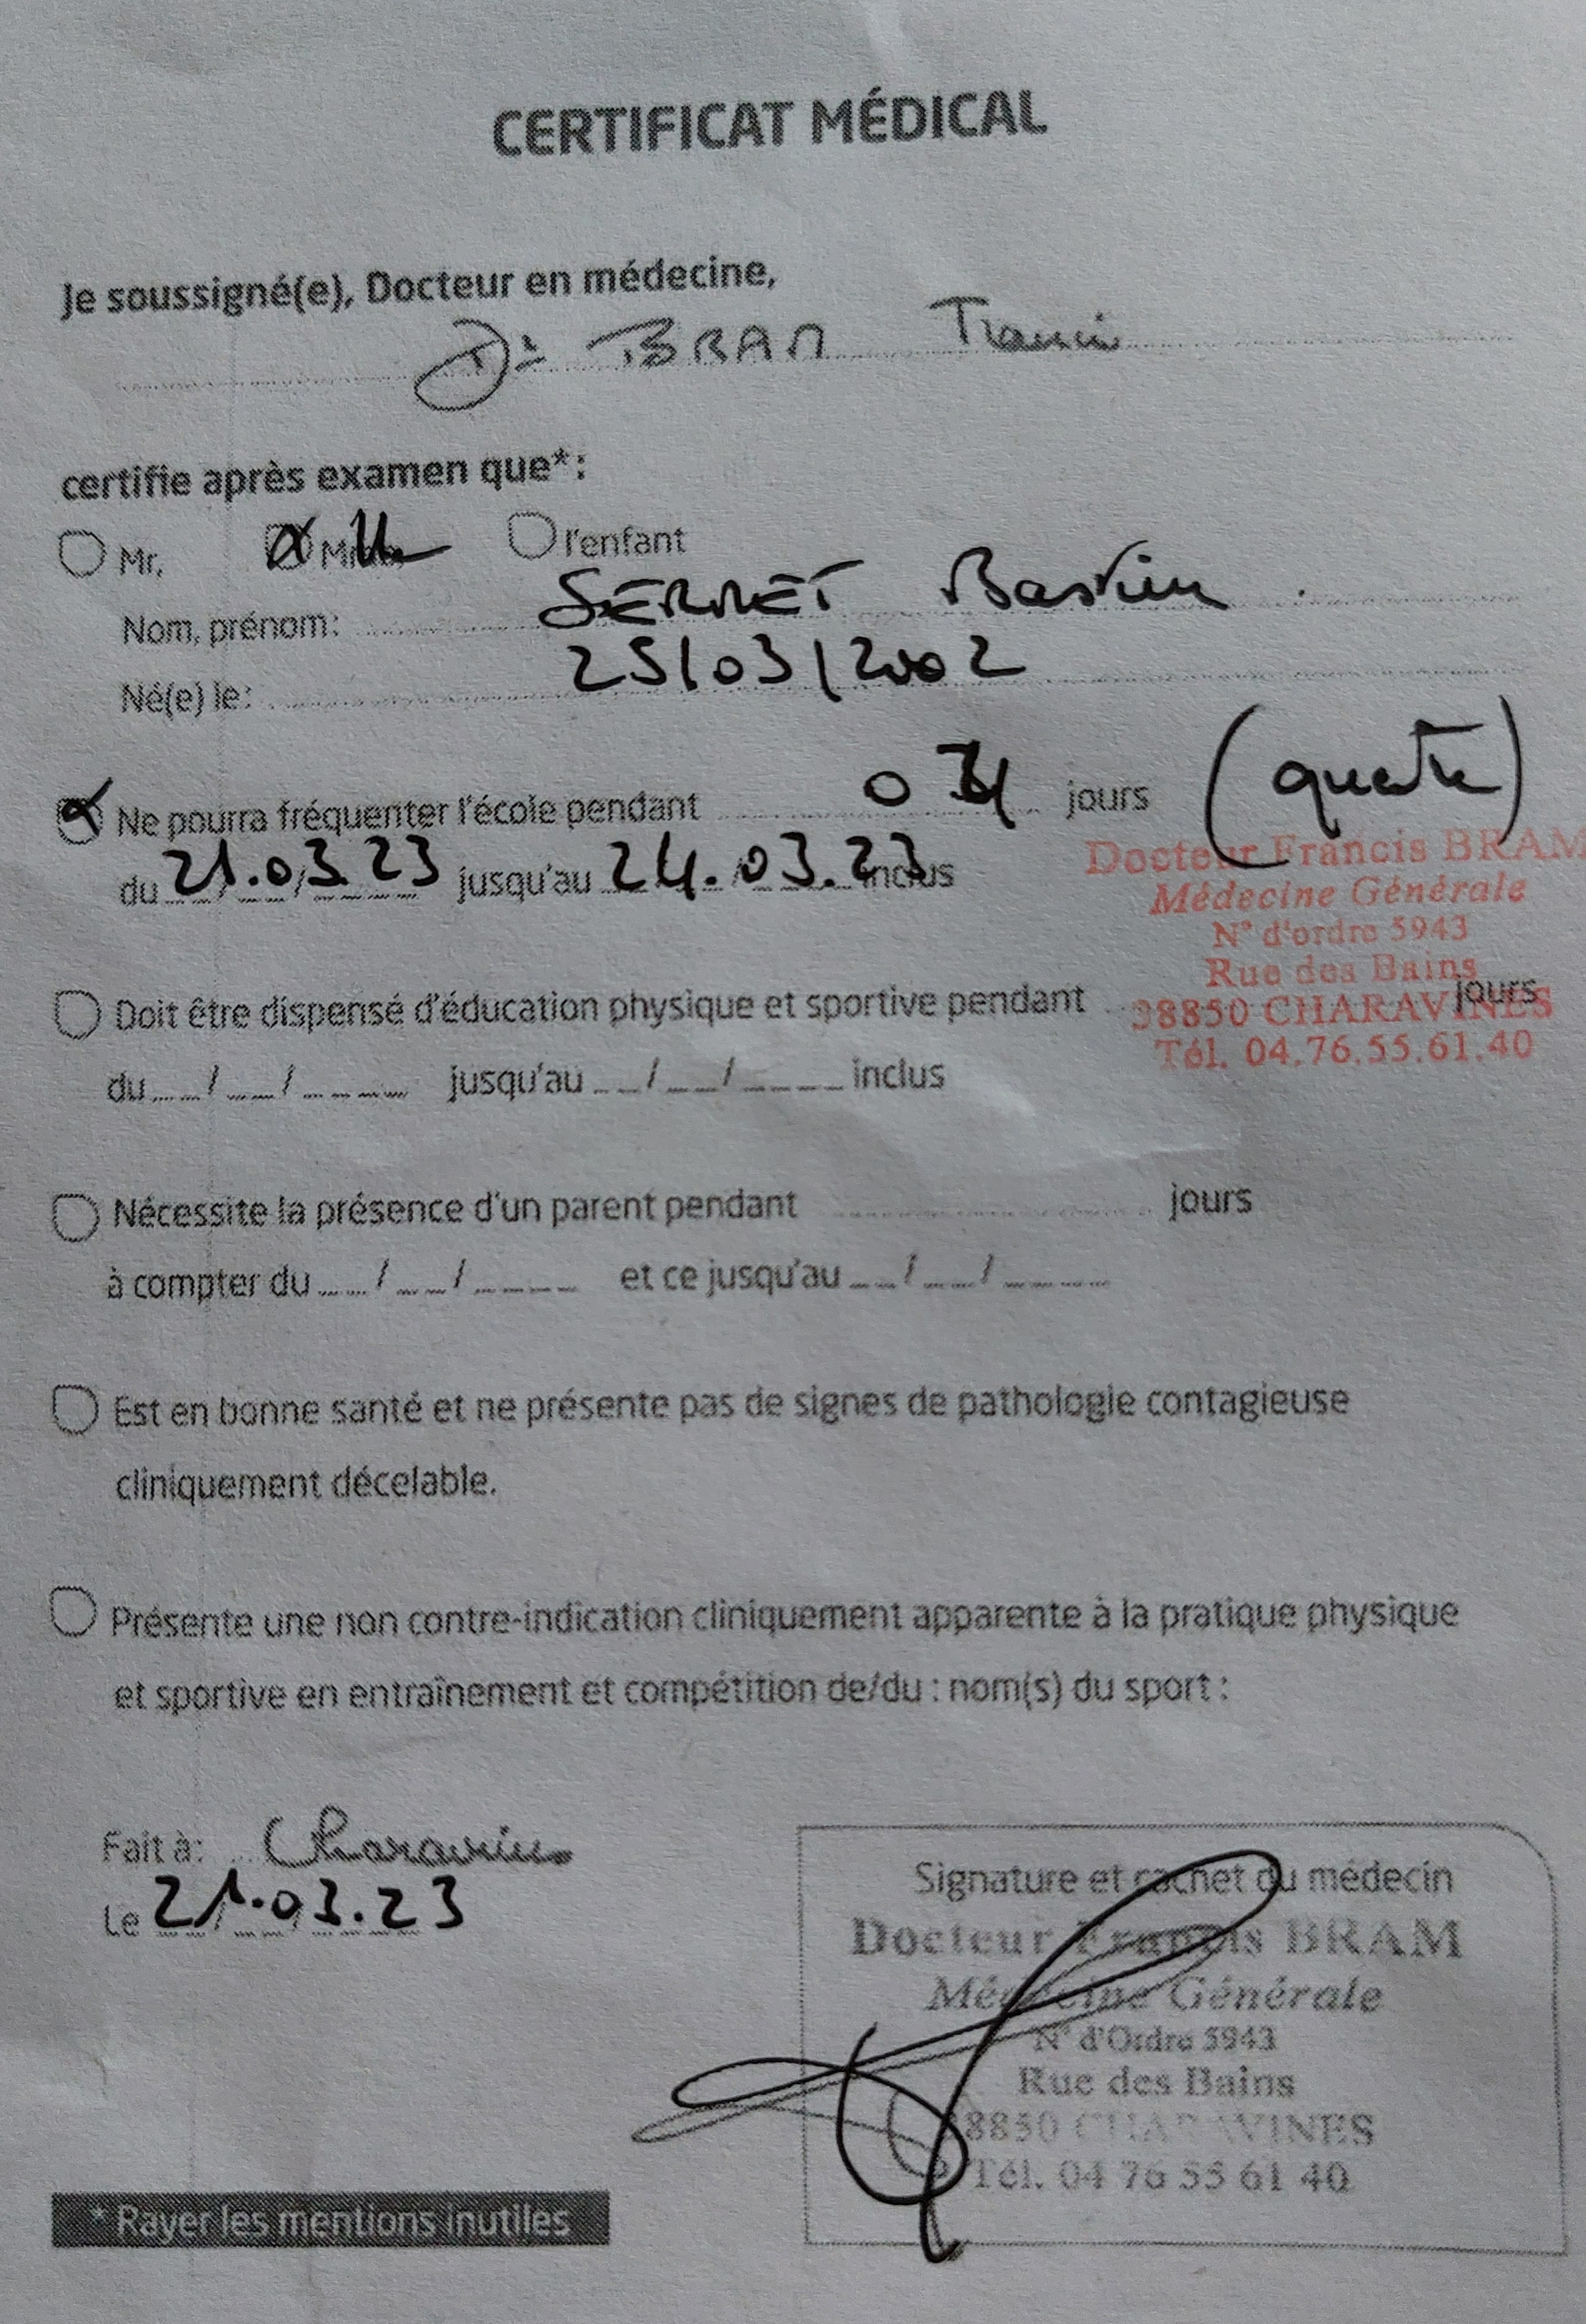 CERTIFICAT MÉDICAL
Je soussigné(e), Docteur en médecine,
Dr BRAM Francis
certifie après examen que*:
Mr, Mme, Mlle l'enfant
Nom, prénom: SERRET Bastien
Né(e) le: 25/03/2002
Ne pourra fréquenter l'école pendant 04 jours (quatre)
du 21.03.23 jusqu'au 24.03.23 inclus
Docteur Francis BRAM
Médecine Générale
N° d'ordre 5943
Rue des Bains
38850 CHARAVINES
Tél. 04.76.55.61.40
Doit être dispensé d'éducation physique et sportive pendant jours
du __/__/____ jusqu'au __/__/____ inclus
Nécessite la présence d'un parent pendant jours
à compter du __/__/____ et ce jusqu'au __/__/____
Est en bonne santé et ne présente pas de signes de pathologie contagieuse
cliniquement décelable.
Présente une non contre-indication cliniquement apparente à la pratique physique
et sportive en entraînement et compétition de/du : nom(s) du sport :
Fait à: Charavines
Le 21.03.23
Signature et cachet du médecin
Docteur Francis BRAM
Médecine Générale
N° d'Ordre 5943
Rue des Bains
38850 CHARAVINES
Tél. 04 76 55 61 40
* Rayer les mentions inutiles